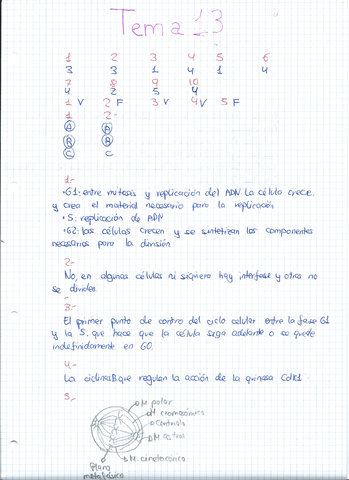 Tema 13
1 2 3 4 5 6
3 3 1 4 1 4
7 8 9 10
4 2 5 4
1 V 2 F 3 V 4 V 5 F
1 2-
A A
B B
C C
1.-
•G1: entre mitosis y replicación del ADN. La célula crece
y crea el material necesario para la replicación
•S: replicación de ADN
•G2: las células crecen y se sintetizan los componentes
necesarios para la división
2.-
No, en algunas células ni siquiera hay interfase y otras no
se dividen.
3.-
El primer punto de control del ciclo celular entre la fase G1
y la S, que hace que la célula siga adelante o se quede
indefinidamente en G0.
4.-
La ciclina B que regulan la acción de la quinasa Cdk1.
5.-
M. polar
M cromosómico
Centriolo
M. astral
M. cinetocórico
Placa
metafásica